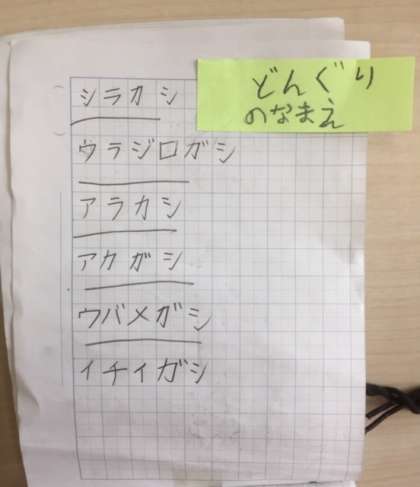 どんぐり
のなまえ
シラカシ
ウラジロガシ
アラカシ
アカガシ
ウバメガシ
イチイガシ